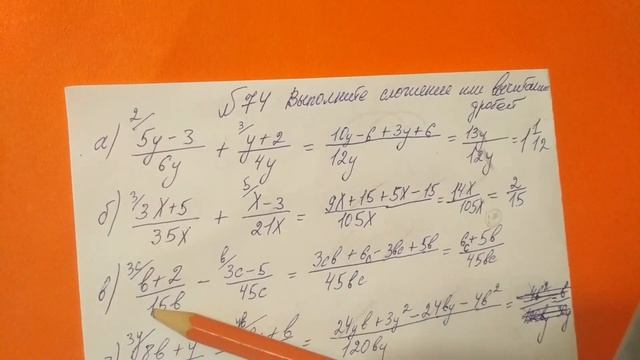 №74 Выполните сложение или вычитание
дробей
а) 2/ 5y-3 / 6y + 3/ y+2 / 4y = 10y-6+3y+6 / 12y = 13y / 12y = 1 1/12
б) 3/ 3x+5 / 35x + 5/ x-3 / 21x = 9x+15+5x-15 / 105x = 14x / 105x = 2/15
в) 3c/ b+2 / 15b - b/ 3c-5 / 45c = 3cb+6c-3bc+5b / 45bc = 6c+5b / 45bc
3y/ 8b+y = 24yb+3y²-24by-4b² / 120by =